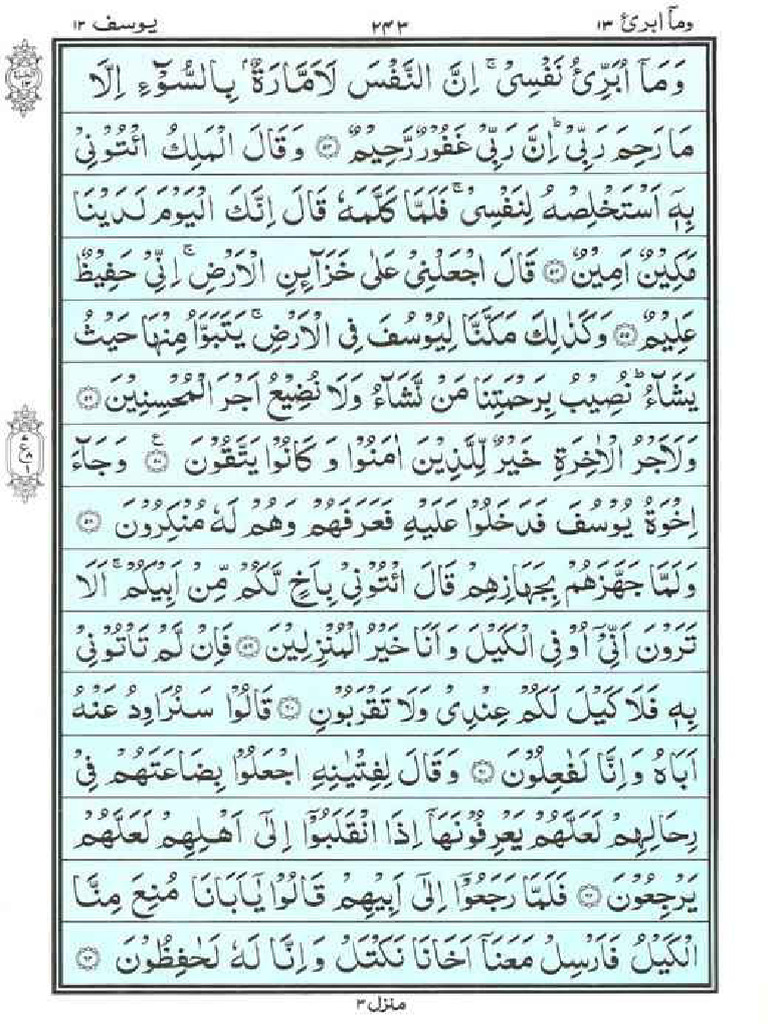 وما ابرئ ١٣ ٢٤٣ يوسف ١٢
وَمَاۤ اُبَرِّئُ نَفْسِیْ ۚ اِنَّ النَّفْسَ لَاَمَّارَةٌۢ بِالسُّوْٓءِ اِلَّا
مَا رَحِمَ رَبِّیْ ؕ اِنَّ رَبِّیْ غَفُوْرٌ رَّحِیْمٌ ۝۵۳ وَقَالَ الْمَلِكُ ائْتُوْنِیْ
بِهٖۤ اَسْتَخْلِصْهُ لِنَفْسِیْ ۚ فَلَمَّا كَلَّمَهٗ قَالَ اِنَّكَ الْیَوْمَ لَدَیْنَا
مَكِیْنٌ اَمِیْنٌ ۝۵۴ قَالَ اجْعَلْنِیْ عَلٰی خَزَآىِٕنِ الْاَرْضِ ۚ اِنِّیْ حَفِیْظٌ
عَلِیْمٌ ۝۵۵ وَكَذٰلِكَ مَكَّنَّا لِیُوْسُفَ فِی الْاَرْضِ ۚ یَتَبَوَّاُ مِنْهَا حَیْثُ
یَشَآءُ ؕ نُصِیْبُ بِرَحْمَتِنَا مَنْ نَّشَآءُ وَلَا نُضِیْعُ اَجْرَ الْمُحْسِنِیْنَ ۝۵۶
وَلَاَجْرُ الْاٰخِرَةِ خَیْرٌ لِّلَّذِیْنَ اٰمَنُوْا وَكَانُوْا یَتَّقُوْنَ ۝۵۷ وَجَآءَ
اِخْوَةُ یُوْسُفَ فَدَخَلُوْا عَلَیْهِ فَعَرَفَهُمْ وَهُمْ لَهٗ مُنْكِرُوْنَ ۝۵۸
وَلَمَّا جَهَّزَهُمْ بِجَهَازِهِمْ قَالَ ائْتُوْنِیْ بِاَخٍ لَّكُمْ مِّنْ اَبِیْكُمْ ۚ اَلَا
تَرَوْنَ اَنِّیْۤ اُوْفِی الْكَیْلَ وَاَنَا خَیْرُ الْمُنْزِلِیْنَ ۝۵۹ فَاِنْ لَّمْ تَاْتُوْنِیْ
بِهٖ فَلَا كَیْلَ لَكُمْ عِنْدِیْ وَلَا تَقْرَبُوْنِ ۝۶۰ قَالُوْا سَنُرَاوِدُ عَنْهُ
اَبَاهُ وَاِنَّا لَفٰعِلُوْنَ ۝۶۱ وَقَالَ لِفِتْیٰنِهِ اجْعَلُوْا بِضَاعَتَهُمْ فِیْ
رِحَالِهِمْ لَعَلَّهُمْ یَعْرِفُوْنَهَاۤ اِذَا انْقَلَبُوْۤا اِلٰۤی اَهْلِهِمْ لَعَلَّهُمْ
یَرْجِعُوْنَ ۝۶۲ فَلَمَّا رَجَعُوْۤا اِلٰۤی اَبِیْهِمْ قَالُوْا یٰۤاَبَانَا مُنِعَ مِنَّا
الْكَیْلُ فَاَرْسِلْ مَعَنَاۤ اَخَانَا نَكْتَلْ وَاِنَّا لَهٗ لَحٰفِظُوْنَ ۝۶۳
منزل ٣